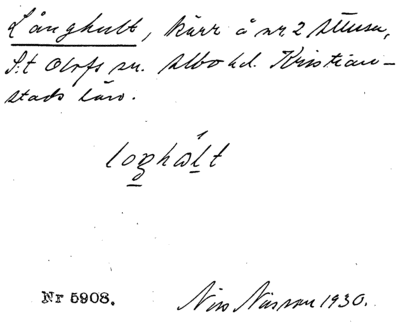 Långhult, kärr å nr 2
S:t Olofs sn. Albo hd. Kristian-
stads län.
loghalt
Nr 5908.
Nils Nilsson 1930.